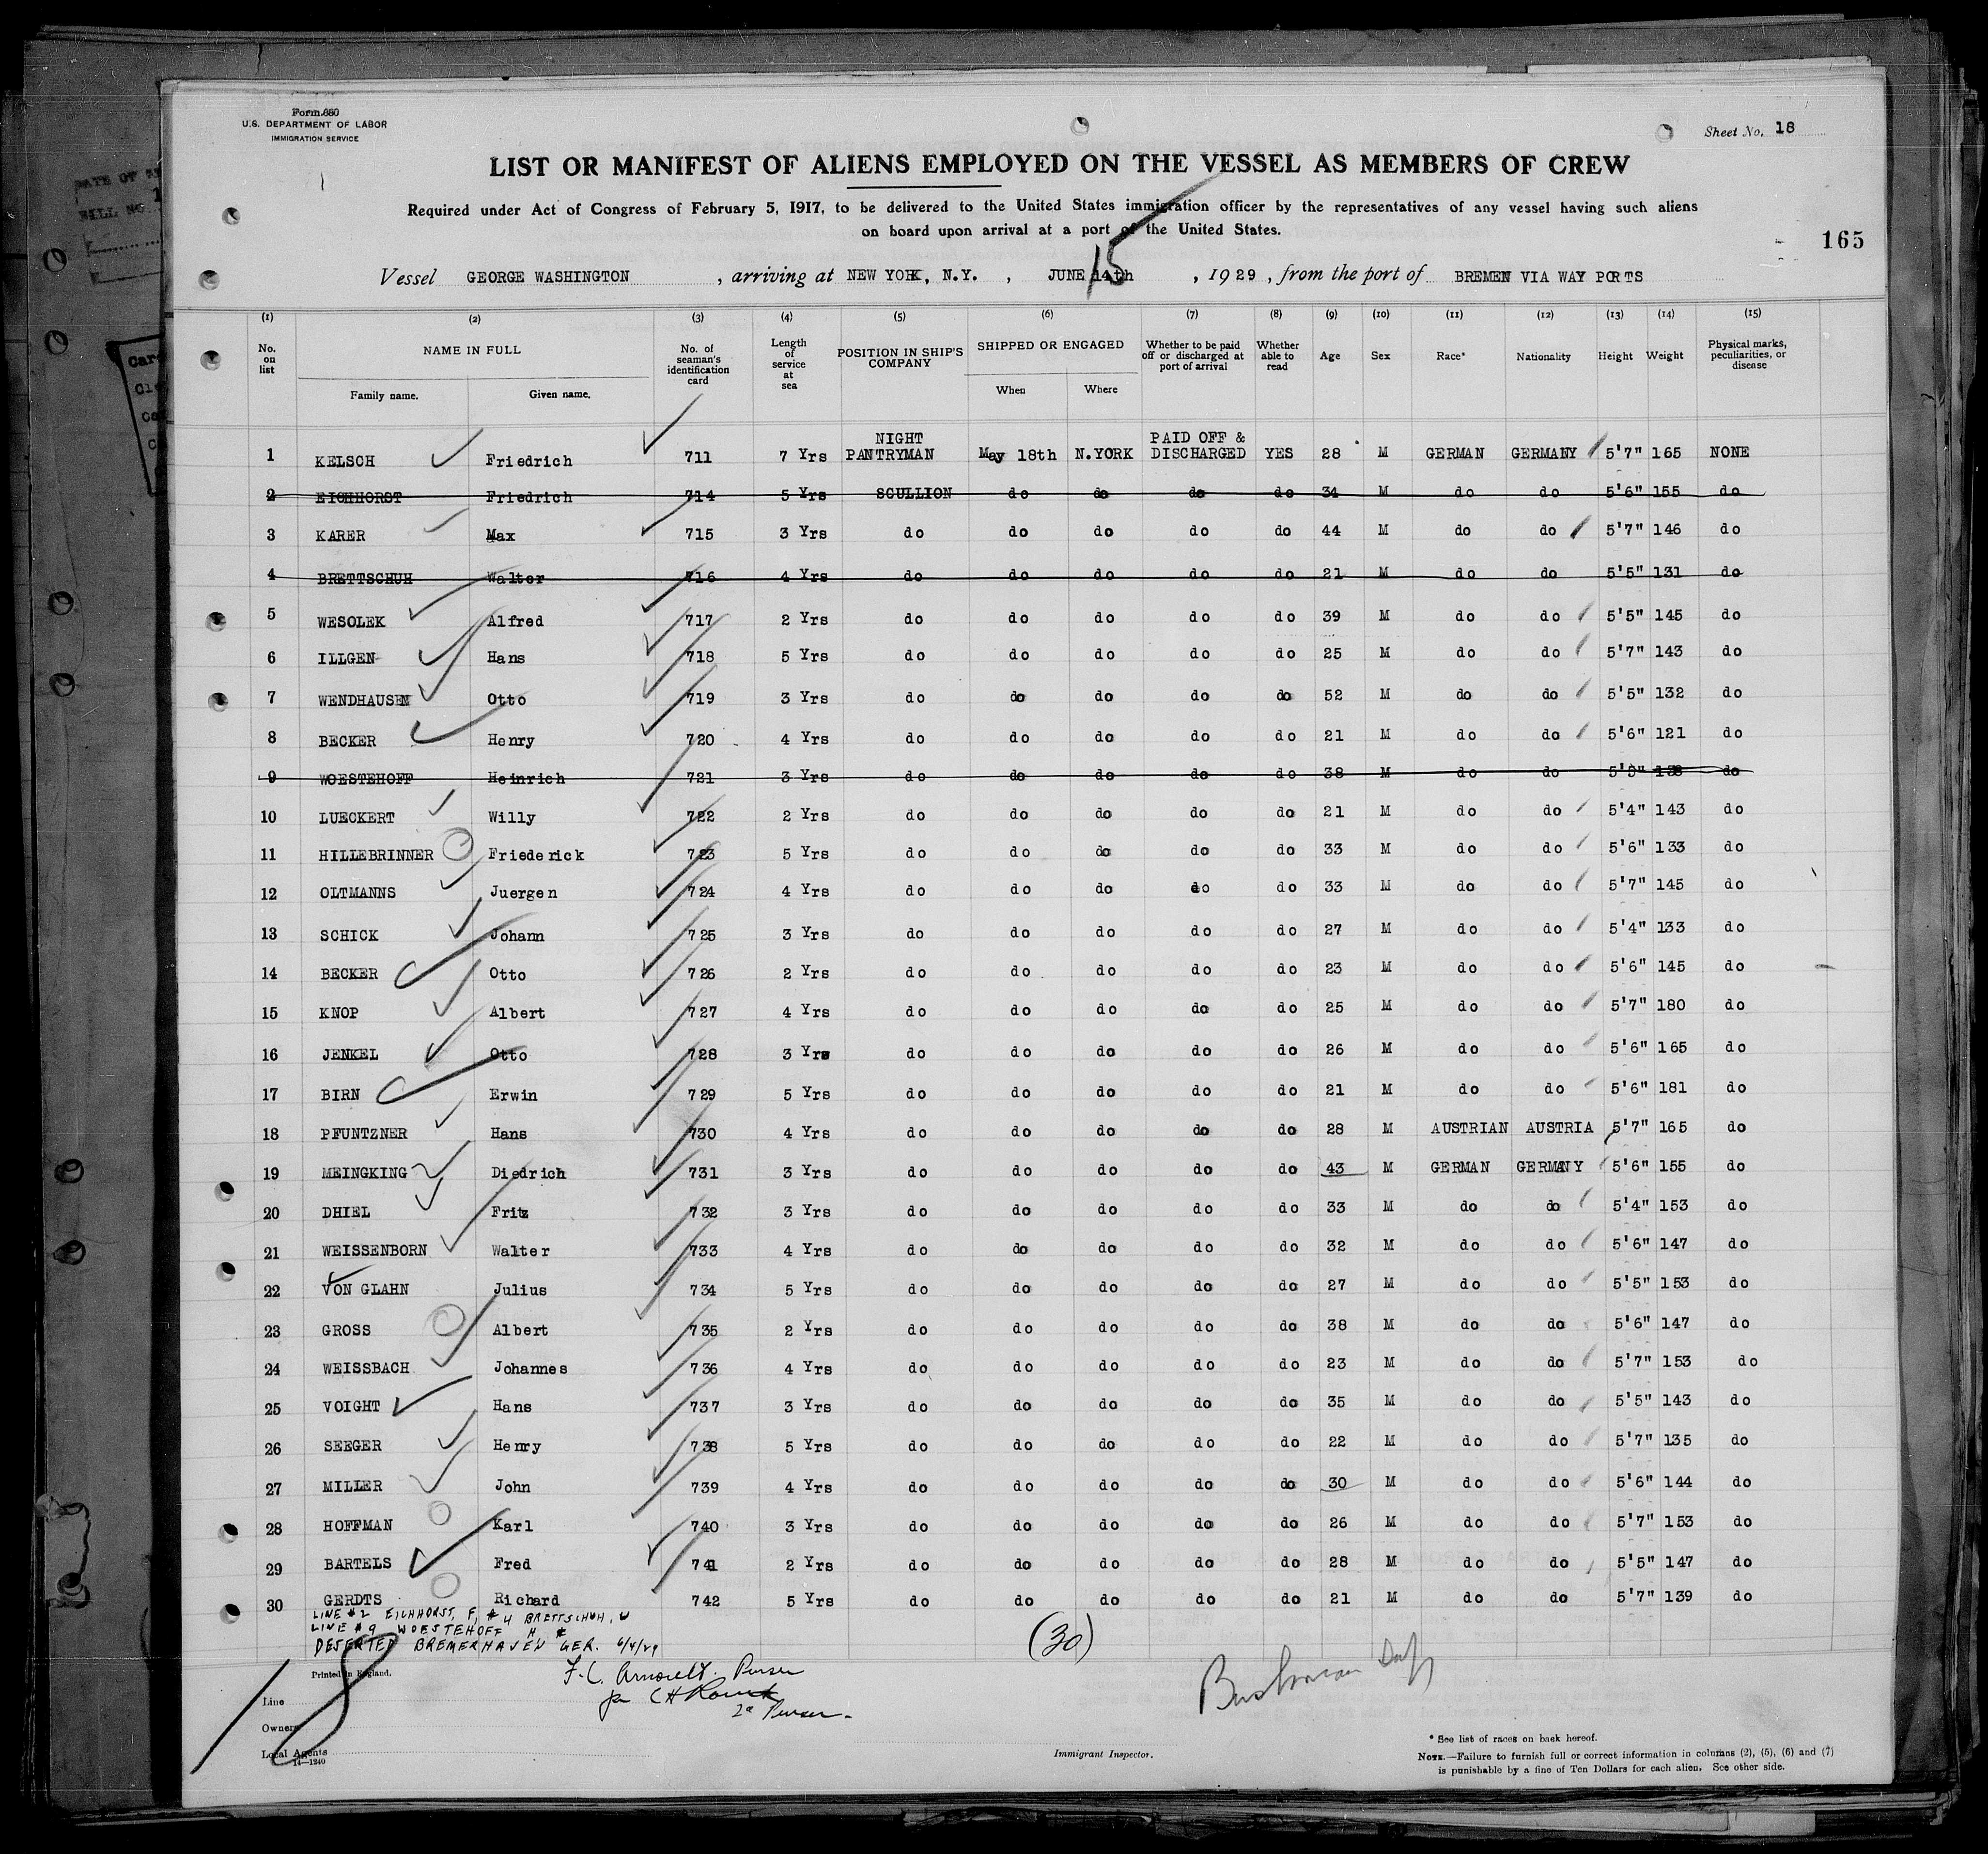 Form 680
U.S. DEPARTMENT OF LABOR
IMMIGRATION SERVICE
Sheet No. 18
LIST OR MANIFEST OF ALIENS EMPLOYED ON THE VESSEL AS MEMBERS OF CREW
Required under Act of Congress of February 5, 1917, to be delivered to the United States immigration officer by the representatives of any vessel having such aliens
on board upon arrival at a port of the United States.
165
15
Vessel GEORGE WASHINGTON , arriving at NEW YORK, N.Y. , JUNE 14th , 1929 , from the port of BREMEN VIA WAY PORTS
(1) (2) (3) (4) (5) (6) (7) (8) (9) (10) (11) (12) (13) (14) (15)
No. on list NAME IN FULL Family name. Given name. No. of seaman's identification card Length of service at sea POSITION IN SHIP'S COMPANY SHIPPED OR ENGAGED When Where Whether to be paid off or discharged at port of arrival Whether able to read Age Sex Race* Nationality Height Weight Physical marks, peculiarities, or disease
1 KELSCH Friedrich 711 7 Yrs NIGHT PANTRYMAN May 18th N.YORK PAID OFF & DISCHARGED YES 28 M GERMAN GERMANY 5'7" 165 NONE
2 EICHHORST Friedrich 714 5 Yrs SCULLION do do do do 34 M do do 5'6" 155 do
3 KARER Max 715 3 Yrs do do do do do 44 M do do 5'7" 146 do
4 BRETTSCHUH Walter 716 4 Yrs do do do do do 21 M do do 5'5" 131 do
5 WESOLEK Alfred 717 2 Yrs do do do do do 39 M do do 5'5" 145 do
6 ILLGEN Hans 718 5 Yrs do do do do do 25 M do do 5'7" 143 do
7 WENDHAUSEN Otto 719 3 Yrs do do do do do 52 M do do 5'5" 132 do
8 BECKER Henry 720 4 Yrs do do do do do 21 M do do 5'6" 121 do
9 WOESTEHOFF Heinrich 721 3 Yrs do do do do do 38 M do do 138 do
10 LUECKERT Willy 722 2 Yrs do do do do do 21 M do do 5'4" 143 do
11 HILLEBRINNER Friederick 723 5 Yrs do do do do do 33 M do do 5'6" 133 do
12 OLTMANNS Juergen 724 4 Yrs do do do do do 33 M do do 5'7" 145 do
13 SCHICK Johann 725 3 Yrs do do do do do 27 M do do 5'4" 133 do
14 BECKER Otto 726 2 Yrs do do do do do 23 M do do 5'6" 145 do
15 KNOP Albert 727 4 Yrs do do do do do 25 M do do 5'7" 180 do
16 JENKEL Otto 728 3 Yrs do do do do do 26 M do do 5'6" 165 do
17 BIRN Erwin 729 5 Yrs do do do do do 21 M do do 5'6" 181 do
18 PFUNTZNER Hans 730 4 Yrs do do do do do 28 M AUSTRIAN AUSTRIA 5'7" 165 do
19 MEINGKING Diedrich 731 3 Yrs do do do do do 43 M GERMAN GERMANY 5'6" 155 do
20 DHIEL Fritz 732 3 Yrs do do do do do 33 M do do 5'4" 153 do
21 WEISSENBORN Walter 733 4 Yrs do do do do do 32 M do do 5'6" 147 do
22 VON GLAHN Julius 734 5 Yrs do do do do do 27 M do do 5'5" 153 do
23 GROSS Albert 735 2 Yrs do do do do do 38 M do do 5'6" 147 do
24 WEISSBACH Johannes 736 4 Yrs do do do do do 23 M do do 5'7" 153 do
25 VOIGHT Hans 737 3 Yrs do do do do do 35 M do do 5'5" 143 do
26 SEEGER Henry 738 5 Yrs do do do do do 22 M do do 5'7" 135 do
27 MILLER John 739 4 Yrs do do do do do 30 M do do 5'6" 144 do
28 HOFFMAN Karl 740 3 Yrs do do do do do 26 M do do 5'7" 153 do
29 BARTELS Fred 741 2 Yrs do do do do do 28 M do do 5'5" 147 do
30 GERDTS Richard 742 5 Yrs do do do do do 21 M do do 5'7" 139 do
LINE #2 EICHHORST, F, #4 BRETTSCHUH, W
LINE #9 WOESTEHOFF H
DESERTED BREMERHAVEN GER. 6/4/29
(30)
18
Printed in England.
F.C. Purser
per CH
2d Purser
Line
Owners
Local Agents
14—1240
Immigrant Inspector.
* See list of races on back hereof.
NOTE.—Failure to furnish full or correct information in columns (2), (5), (6) and (7)
is punishable by a fine of Ten Dollars for each alien. See other side.